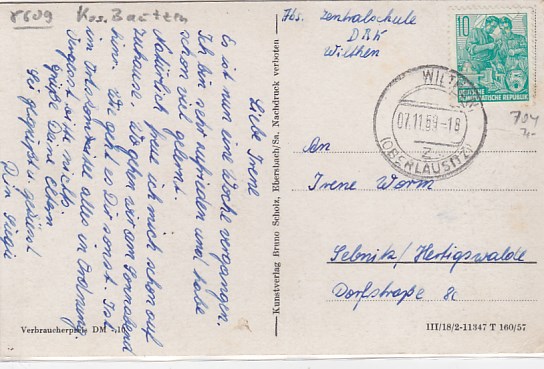 8609 Krs. Bautzen
Liebe Irene
Es ist nun eine Woche vergangen.
Ich bin sehr zufrieden und habe
schon viel gelernt.
Natürlich freue ich mich schon auf
zuhause. Wir gehen vor dem Sonnabend
Wie geht es Dir sonst. Ist
im Ortskontrolle alles in Ordnung.
bitte nichts
Grüße Deine Eltern
Sei gegrüßt
Dein
Verbraucherpreis DM -,10
Kunstverlag Bruno Scholz, Ebersbach/Sa. Nachdruck verboten
Abs. Zentralschule
DRK
Wilthen
10
DEUTSCHE
DEMOKRATISCHE REPUBLIK
WILTHEN
07.11.59-18
z
(OBERLAUSITZ)
704
An
Irene Worm
Sebnitz/Hertigswalde
Dorfstraße 8c
III/18/2-11347 T 160/57